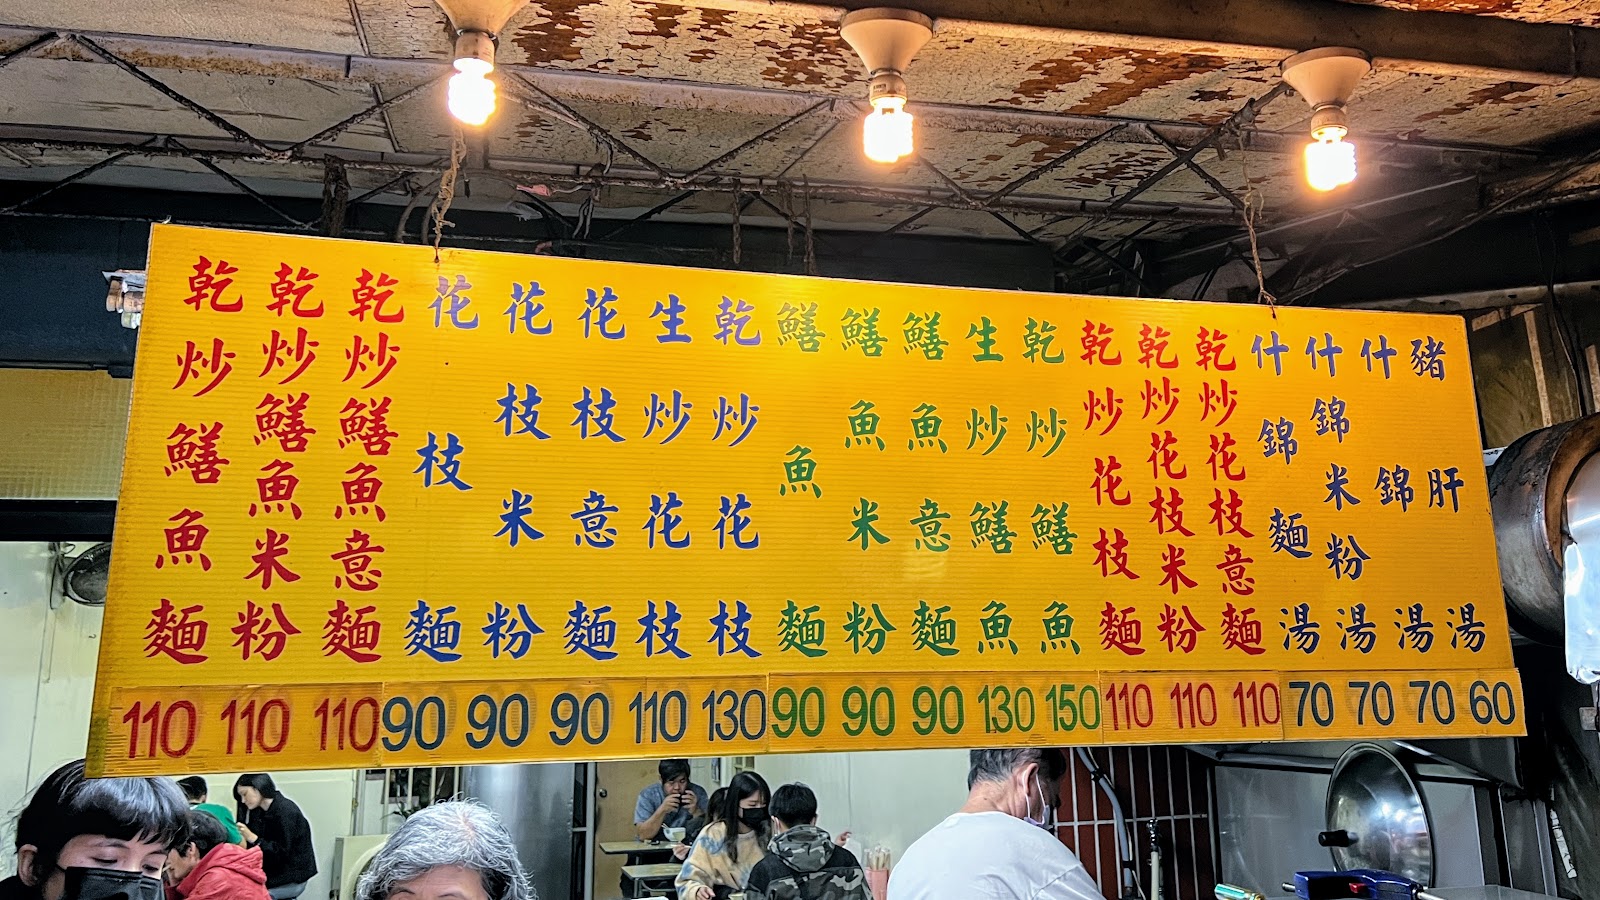 乾炒鱔魚麵 110
乾炒鱔魚米粉 110
乾炒鱔魚意麵 110
花枝麵 90
花枝米粉 90
花枝意麵 90
生炒花枝 110
乾炒花枝 130
鱔魚麵 90
鱔魚米粉 90
鱔魚意麵 90
生炒鱔魚 130
乾炒鱔魚 150
乾炒花枝麵 110
乾炒花枝米粉 110
乾炒花枝意麵 110
什錦麵湯 70
什錦米粉湯 70
什錦湯 70
豬肝湯 60